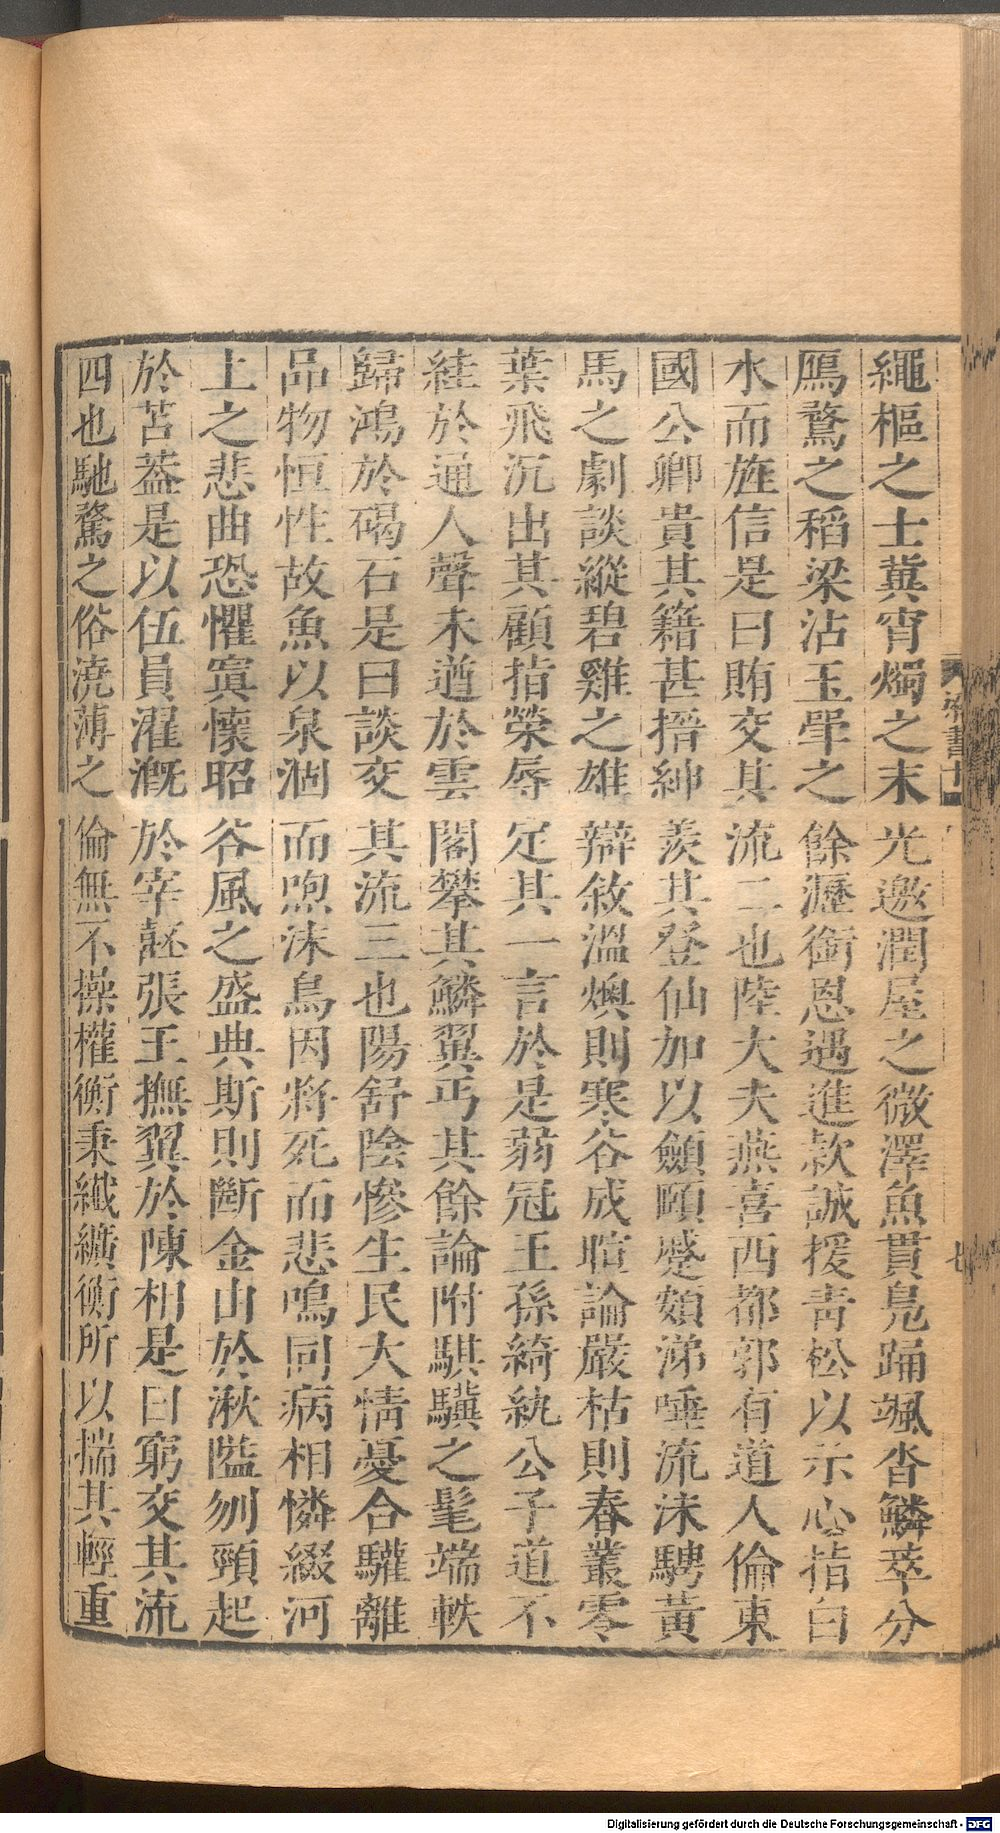 繩樞之士冀宵燭之末光邀潤屋之微澤魚貫鳧踊颯沓鱗萃分
鴈鶩之稻粱沾玉斝之餘瀝銜恩遇進款誠援青松以示心指白
水而旌信是曰賄交其流二也陸大夫燕喜西都郭有道人倫東
國公卿貴其籍甚搢紳羨其登仙加以顩頤蹙頞涕唾流沫騁黃
馬之劇談縱碧雞之雄辯敘溫燠則寒谷成暄論嚴枯則春叢零
葉飛沉出其顧指榮辱定其一言於是蒻冠王孫綺紈公子道不
絓於通人聲未遒於雲閣攀其鱗翼丐其餘論附騏驥之髦端軼
歸鴻於碣石是曰談交其流三也陽舒陰慘生民大情憂合驩離
品物恒性故魚以泉涸而呴沫鳥因將死而悲鳴同病相憐綴河
上之悲曲恐懼寘懷昭谷風之盛典斯則斷金由於湫隘刎頸起
於苫葢是以伍員濯溉於宰嚭張王撫翼於陳相是曰窮交其流
四也馳騖之俗澆薄之倫無不操權衡秉纖纊衡所以揣其輕重
七
Digitalisierung gefördert durch die Deutsche Forschungsgemeinschaft - DFG